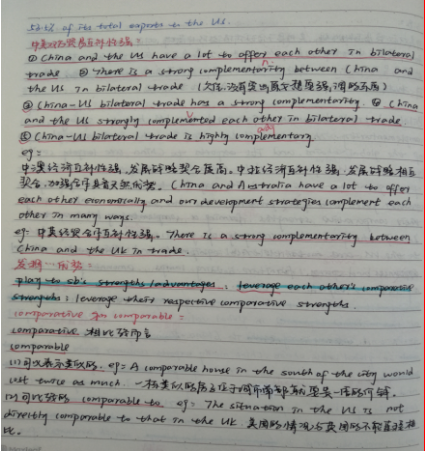 52.2% of its total exports to the US.
中美经贸互补性强：
① China and the US have a lot to offer each other in bilateral
trade ② There is a strong complementarity between China and
the US in bilateral trade
③ China-US bilateral trade has a strong complementarity. ④ China
and the US strongly complemented each other in bilateral trade
⑤ China-US bilateral trade is highly complementary
eg:
中澳经济互补性强，发展战略契合度高。中北经济互补性强，发展战略相互
契合，加强合作具有天然优势。China and Australia have a lot to offer
each other economically and our development strategies complement each
other in many ways.
eg: 中英经贸合作互补性强。There is a strong complementarity between
China and the UK in trade.
发挥…优势：
play to sb's strengths/advantages; leverage each other's comparative
strengths; leverage their respective comparative strengths.
comparative 和 comparable:
comparative 相比较而言
comparable
(1) 可以表示类似的。eg: A comparable house in the south of the city would
cost twice as much. 一栋类似的房子位于城市南部就要贵一倍的价钱。
(2) 可比较的 comparable to eg: The situation in the US is not
directly comparable to that in the UK. 美国的情况与英国的不能直接相
比。